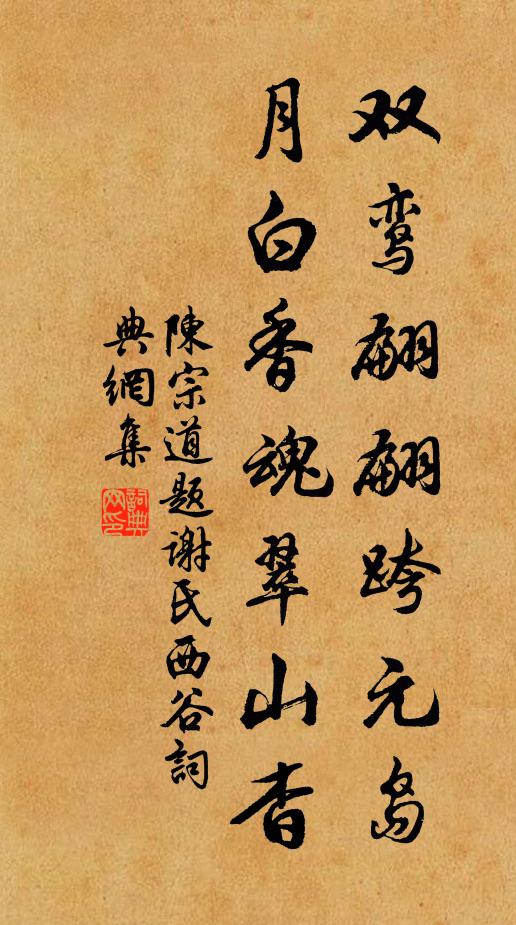 双鸾翩翩跨元岛
月白香魂翠山杳
陳宗道题謝氏西谷詞
典網集
詞典网印